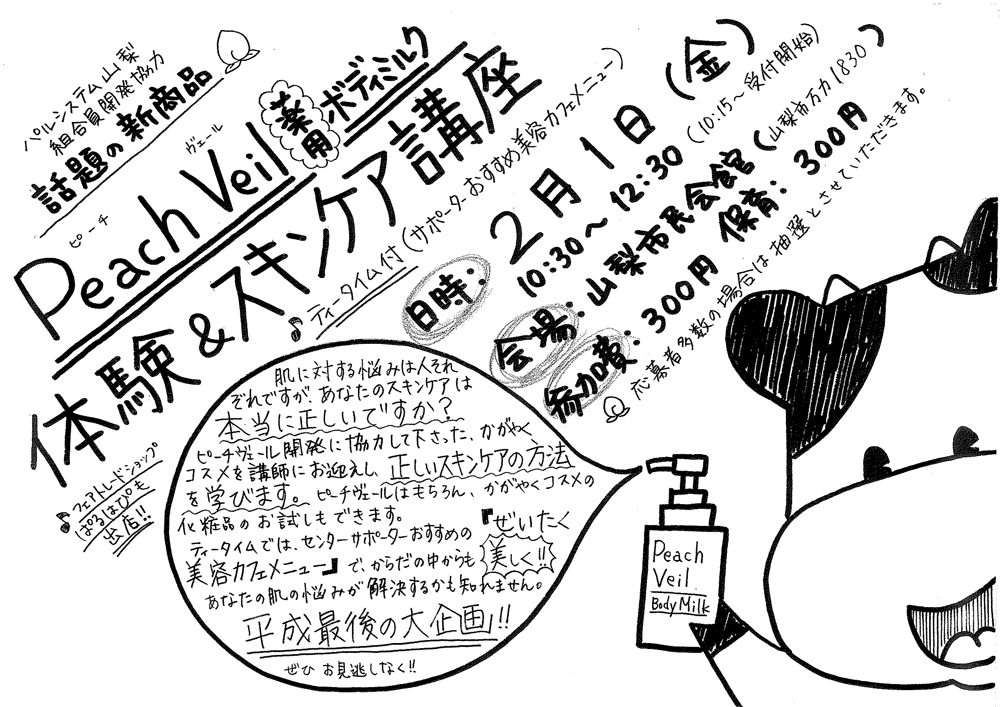 パルシステム山梨
組合員開発協力
話題の新商品
ピーチ ヴェール
Peach Veil 薬用 ボディミルク
体験&スキンケア講座
ティータイム付(サポーターおすすめ美容カフェメニュー)
日時:2月1日(金)
10:30~12:30(10:15~受付開始)
会場:山梨市民会館(山梨市万力1830)
参加費:300円 保育:300円
応募者多数の場合は抽選とさせていただきます。
フェアトレードショップ
ぱるはぴも
出店!!
肌に対する悩みは人それ
ぞれですが、あなたのスキンケアは
本当に正しいですか?
ピーチヴェール開発に協力して下さった、かがやく
コスメを講師にお迎えし、正しいスキンケアの方法
を学びます。ピーチヴェールはもちろん、かがやくコスメの
化粧品のお試しもできます。
ティータイムでは、センターサポーターおすすめの『ぜいたく
美容カフェメニュー』で、からだの中からも美しく!!
あなたの肌の悩みが解決するかも知れません。
平成最後の大企画!!
ぜひお見逃しなく!!
Peach
Veil
Body Milk